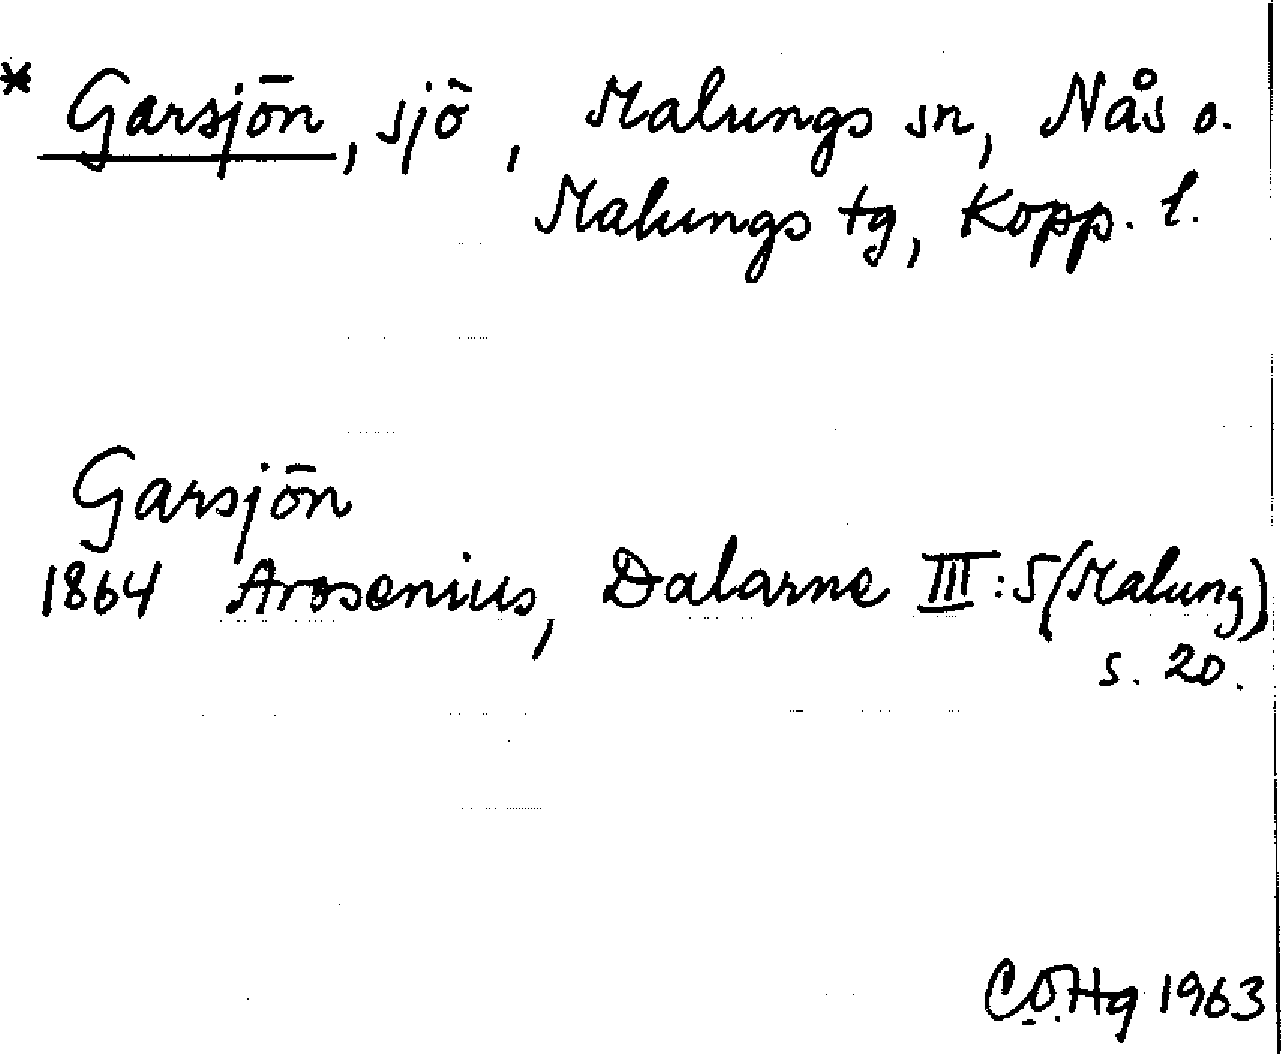 * Garsjön, sjö, Malungs sn, Nås o.
Malungs tg, Kopp. l.
Garsjön
1864 Arosenius, Dalarne III:5 (Malung)
s. 20.
C.O.Hg 1963